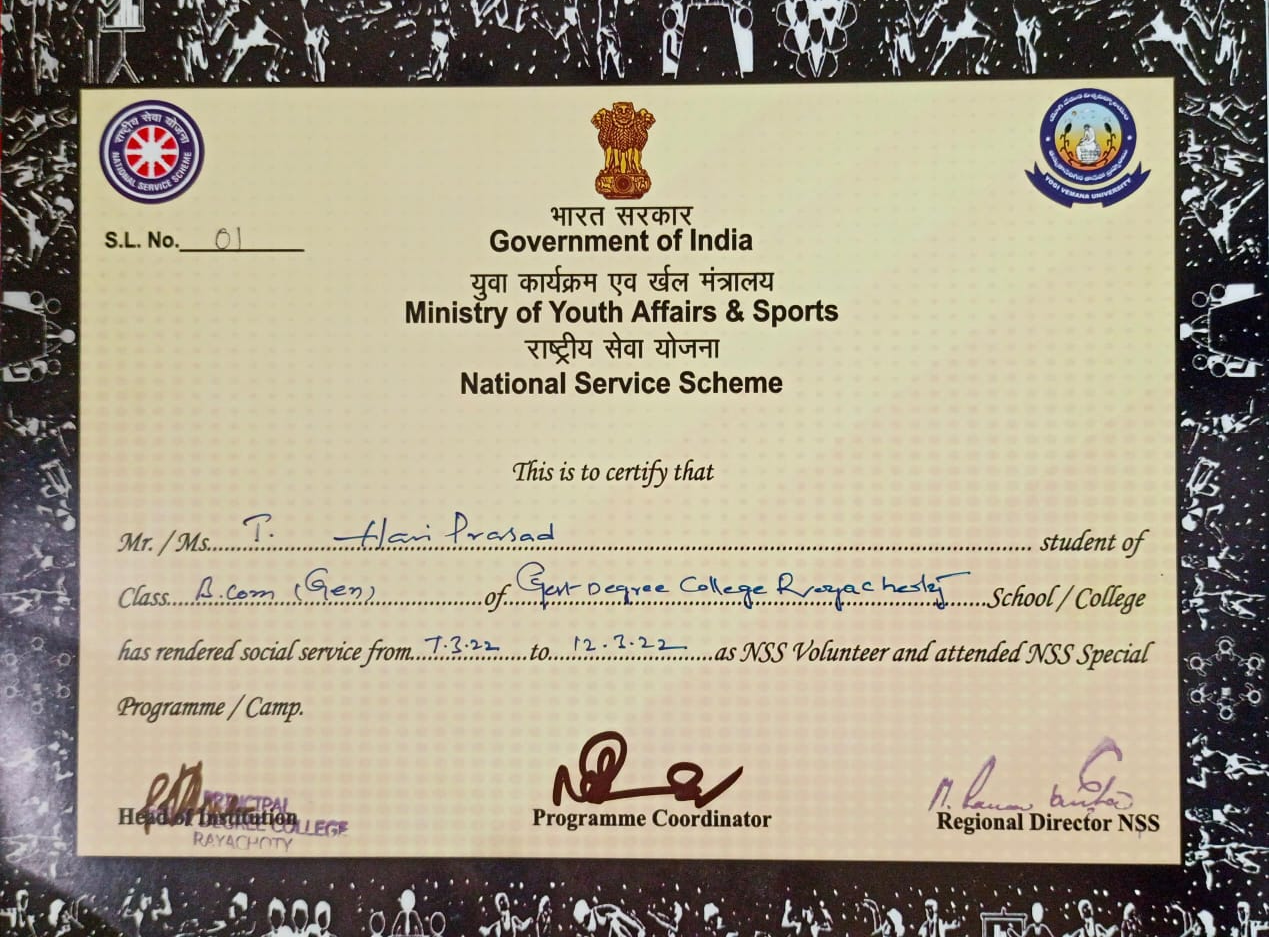 राष्ट्रीय सेवा योजना
NATIONAL SERVICE SCHEME
YOGI VEMANA UNIVERSITY
S.L. No. 01
भारत सरकार
Government of India
युवा कार्यक्रम एव र्खल मंत्रालय
Ministry of Youth Affairs & Sports
राष्ट्रीय सेवा योजना
National Service Scheme
This is to certify that
Mr. / Ms. T. Hari Prasad student of
Class B.com (Gen) of Govt Degree College Rayachoty School / College
has rendered social service from 7.3.22 to 12.3.22 as NSS Volunteer and attended NSS Special
Programme / Camp.
Head of Institution
PRINCIPAL
DEGREE COLLEGE
RAYACHOTY
Programme Coordinator
Regional Director NSS